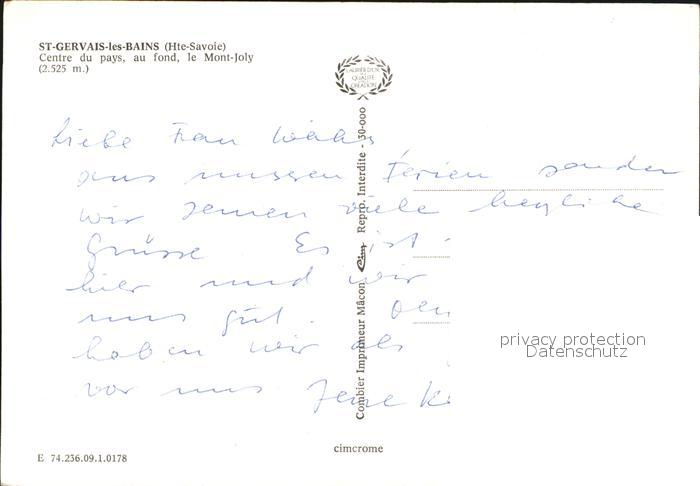 ST-GERVAIS-les-BAINS (Hte-Savoie)
Centre du pays, au fond, le Mont-Joly
(2.525 m.)
LAURIER D'OR
QUALITÉ
CRÉATION
Liebe Frau
aus unseren Ferien senden
wir Ihnen viele herzliche
Grüsse. Es ist
hier und wir
uns gut. Den
haben wir als
vor uns
Combier Imprimeur Mâcon Cim Repro. Interdite - 30-000
privacy protection
Datenschutz
cimcrome
E 74.236.09.1.0178